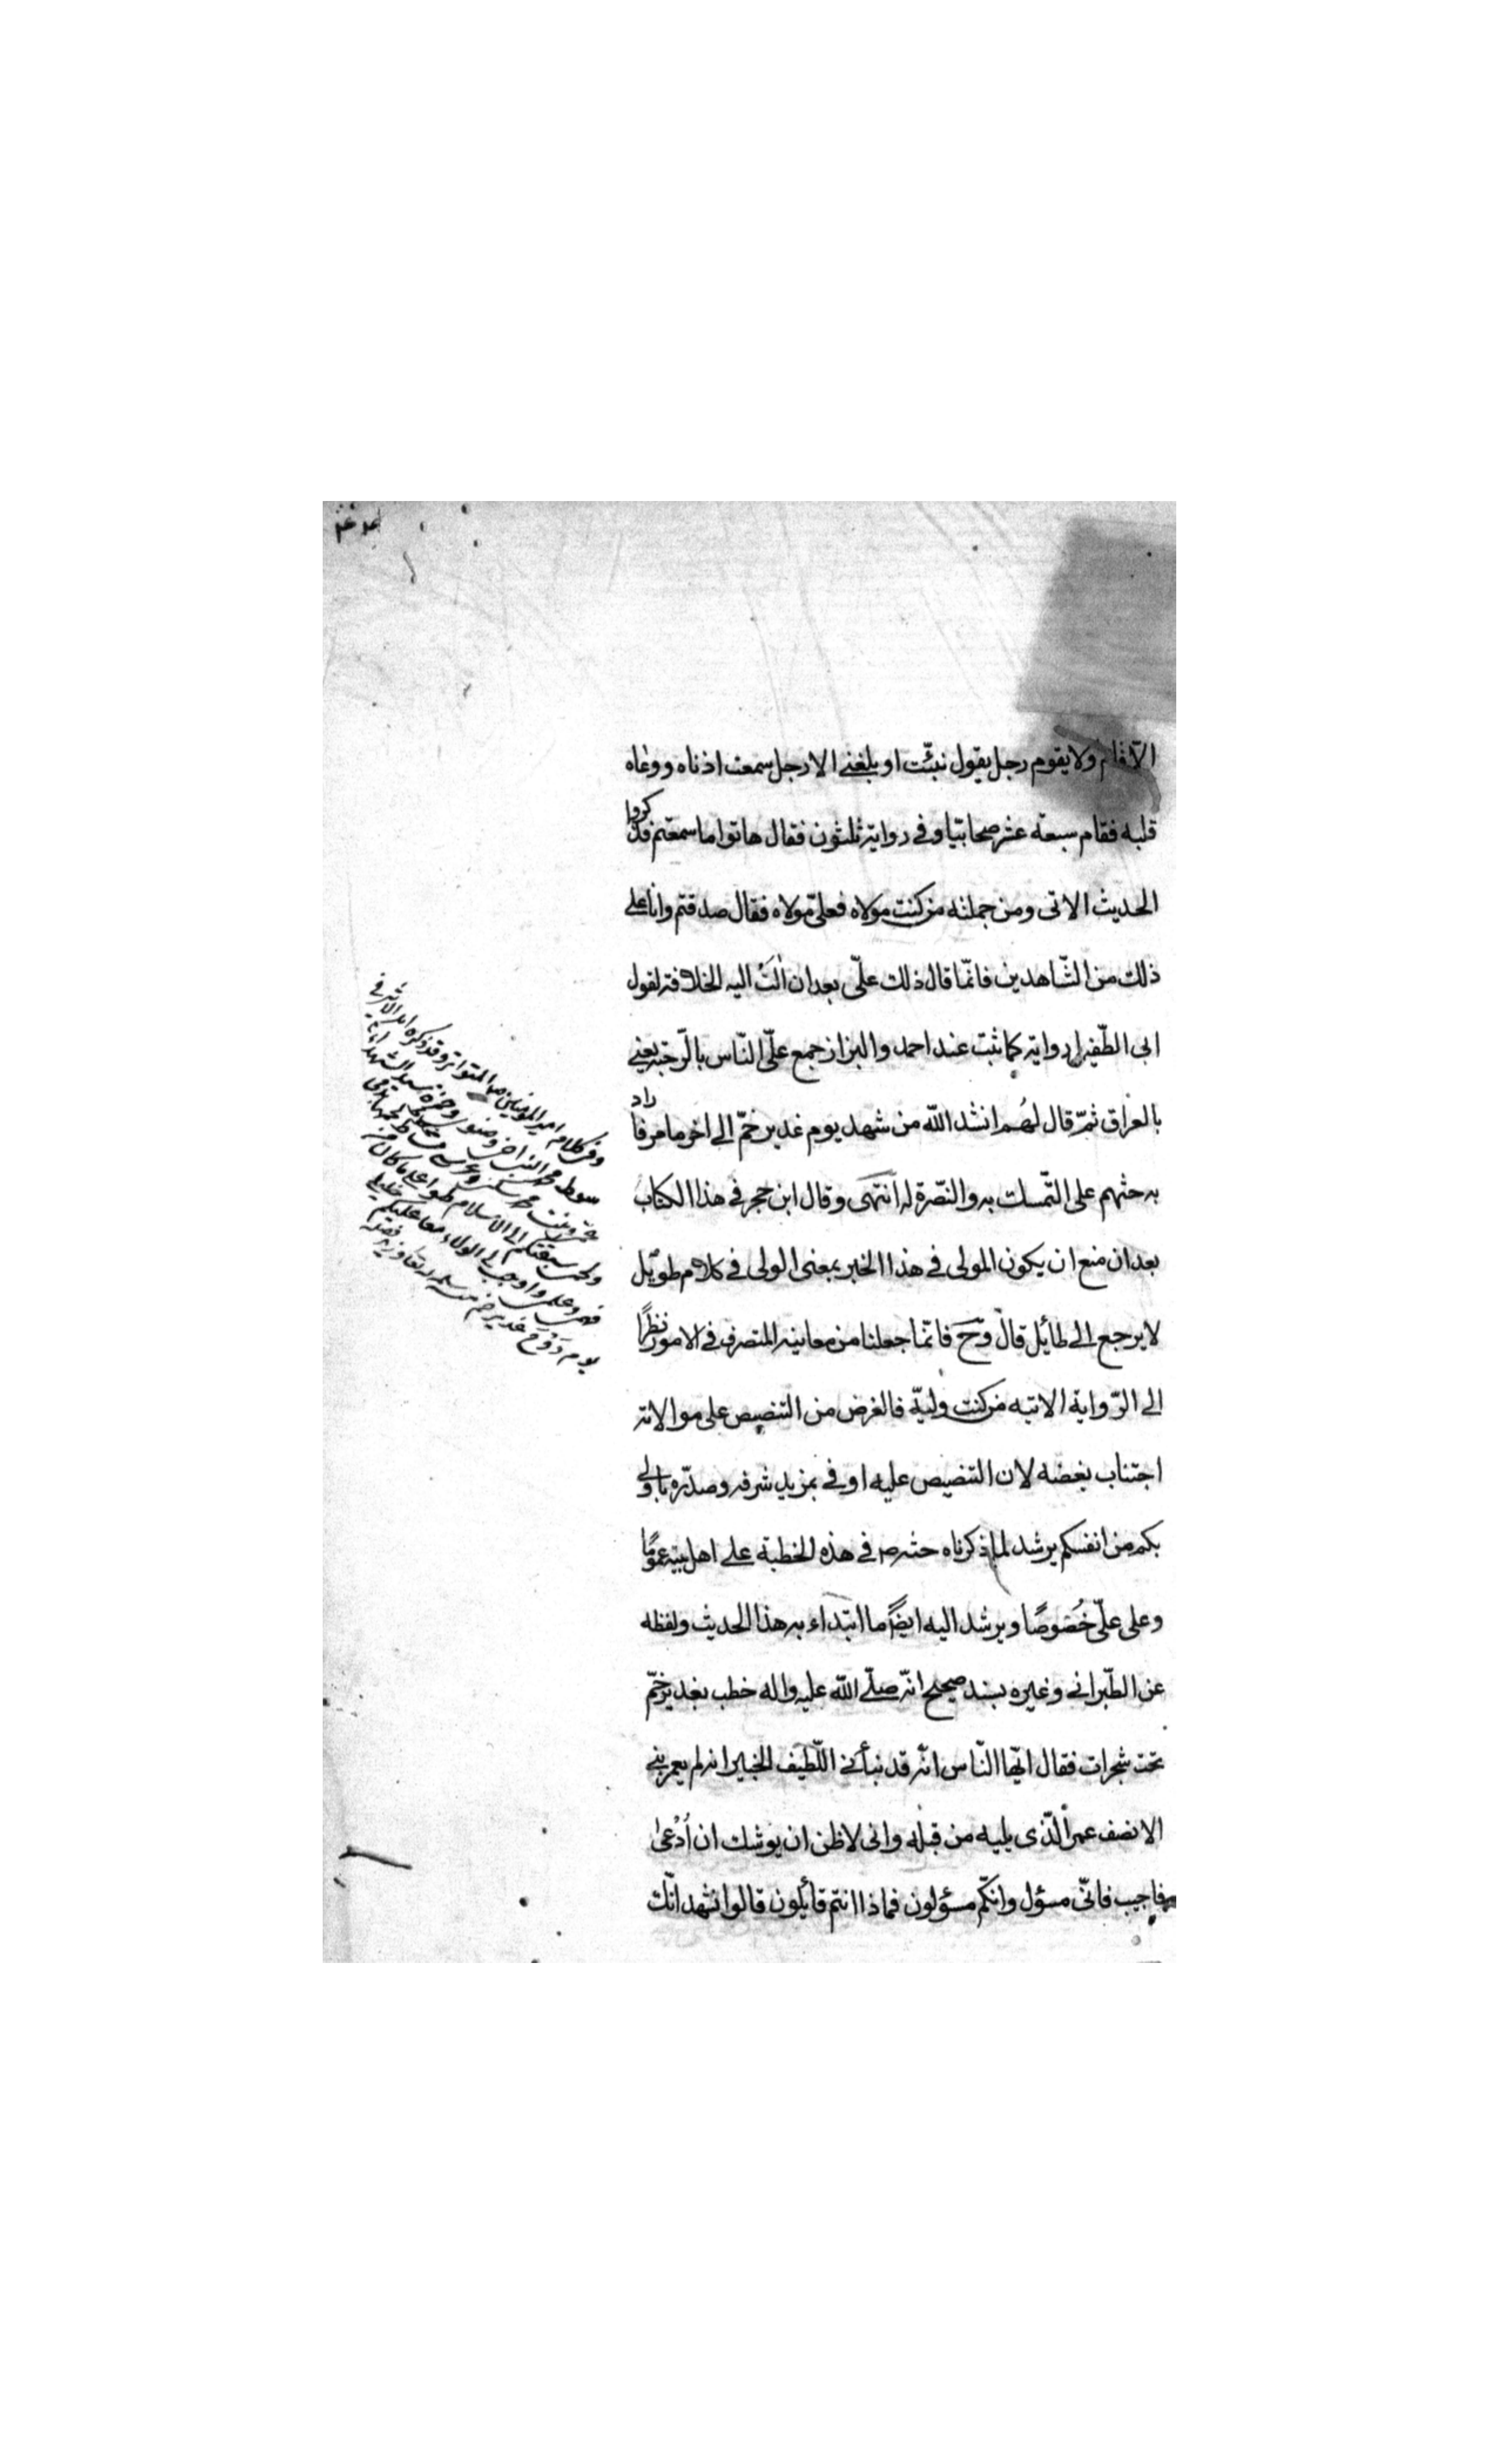 الا قام ولا يقوم رجل يقول نبئت او بلغنى الا رجل سمعت اذناه ووعاه
قلبه فقام سبعة عشر صحابيّا وفى رواية ثلثون فقال هاتوا ما سمعتم فذكروا
الحديث الاتى ومن جملته من كنت مولاه فعلىّ مولاه فقال صدقتم وانا على
ذلك من الشّاهدين فانّما قال ذلك علىّ بعد ان الَت اليه الخلافة لقول
ابى الطّفيل راويه كما ثبت عند احمد والبزاز جمع علىّ النّاس بالرّحبة يعنى
بالعراق ثمّ قال لهُم انشد الله من شهد يوم غدير خمّ الى اخر ما مر فاراد
به حثهم على التّمسك به والنّصرة له انتهى وقال ابن حجر فى هذا الكتاب
بعد ان منع ان يكون المولى فى هذا الخبر بمعنى الولى فى كلام طويل
لا يرجع الى طائل قال وح فانّما جعلنا من معانيه المتصرف فى الامور نظرًا
الى الرّواية الاتيه من كنت وليّه فالغرض من التنصيص على موالاته
اجتناب بغضه لان التنصيص عليه اوفى بمزيد شرفه وصدّره باولى
بكم من انفسكم يرشد لما ذكرناه حثه ص فى هذه الخطبة على اهل بيته عمومًا
وعلى علىّ خُصُوصًا ويرشد اليه ايضًا ما ابتداء به هذا الحديث ولفظه
عن الطّبرانى وغيره بسند صحيح انّه صلّى الله عليه واله خطب بغدير خمّ
تحت شجرات فقال ايّها النّاس انّه قد نبأنى اللّطيف الخبير انه لم يعمر نبى
الا نصف عمر الّذى يليه من قبله وانى لاظن ان يوشك ان اُدْعىٰ
فاجيب فانّى مسؤل وانكّم مسؤلون فماذا انتم قائلون قالوا نشهد انّك
ومن كلام امير المؤمنين المتواتر وقد ذكره ابن الاثير فى
محمد النبى اخى وصنوى وحمزة سيد الشهداء عمى
وبنت محمد سكنى وعرسى
سبقتكم الى الاسلام طرا على ما كان من
فهمى وعلمى واوجب لى الولاء معا عليكم خليلى
يوم دَوْح غدير خم